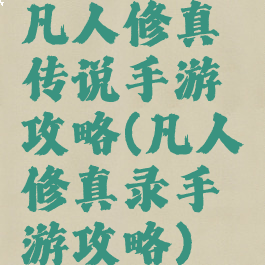 凡人修真
传说手游
攻略(凡人
修真录手
游攻略)